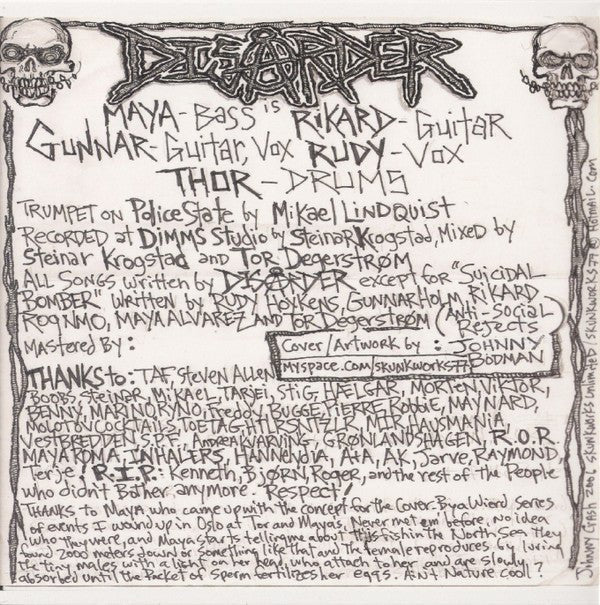 DISÅRDER
is
MAYA - BASS RIKARD - GUITAR
GUNNAR - GUITAR, VOX RUDY - VOX
THOR - DRUMS
TRUMPET ON POLICE STATE by MIKAEL LINDQUIST
RECORDED at DIMMS STUDIO by STEINAR KROGSTAD, MIXED by
STEINAR KROGSTAD AND TOR DEGERSTRØM
ALL SONGS WRITTEN by DISÅRDER EXCEPT FOR "SUICIDAL
BOMBER" WRITTEN by RUDY HOYKENS, GUNNAR HOLM, RIKARD
ROGNMO, MAYA ALVAREZ AND TOR DEGERSTRØM (ANTI-SOCIAL
REJECTS)
MASTERED BY:
COVER/ARTWORK by: JOHNNY
MYSPACE.COM/SKUNKWORKS77 BODMAN
THANKS to: TAF, STEVEN ALLEN
BOOBS STEINAR, MIKAEL, TARJEI, STIG, HÆLGAR, MORTEN VIKTOR,
BENNY, MARINO, RYNO, FREDDY, BUGGE, PIERRE, ROBBIE, MAYNARD,
MOLOTOV COCKTAILS, TOETAG, MIR, HAUSMANIA,
VESTBREDDEN, S.P.F, ANDREA KVARVING, GRØNLANDSHAGEN, R.O.R.
MAYA ROMA, INHALERS, HANNENDIA, A+A, AK, JARVE, RAYMOND,
TERJE! R.I.P.: KENNETH, BJØRN, ROGER, and the rest of the People
who didn't Bother anymore. Respect!
THANKS to Maya who came up with the concept for the Cover. By a Wierd series
of events I wound up in Oslo at Tor and Mayas. Never met em before, no idea
who they were, and Maya starts telling me about this fish in the North Sea they
found 2000 meters down or something like that and the female reproduces by luring
the tiny males with a light on her head, who attach to her and are slowly
absorbed until the Packet of Sperm fertilizes her eggs. Ain't Nature Cool?
Johnny 2006 SKUNKWORKS UNLIMITED/SKUNKWORKS77@HOTMAIL.COM